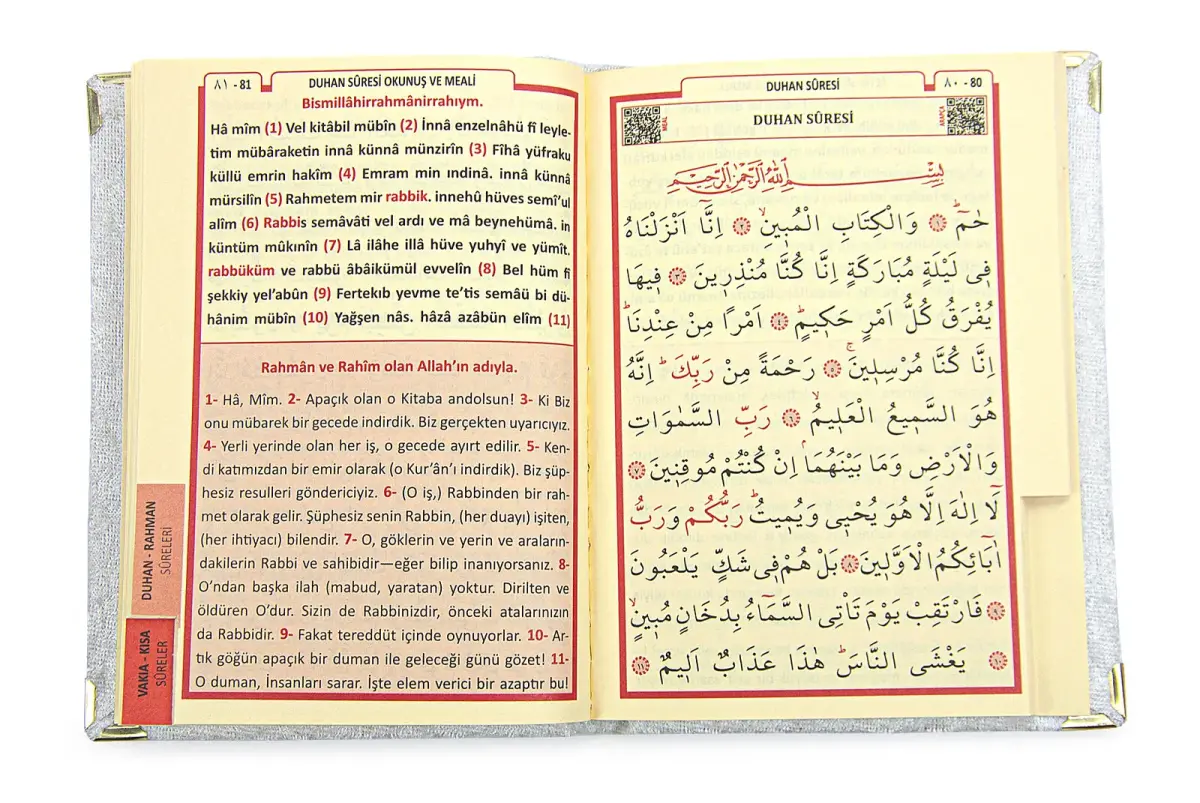 ٨١ - 81
DUHAN SÛRESİ OKUNUŞ VE MEALİ
Bismillâhirrahmânirrahıym.
Hâ mîm (1) Vel kitâbil mübîn (2) İnnâ enzelnâhü fî leyle-
tim mübâraketin innâ künnâ münzirîn (3) Fîhâ yüfraku
küllü emrin hakîm (4) Emram min ındinâ. innâ künnâ
mürsilîn (5) Rahmetem mir rabbik. innehû hüves semî’ul
alîm (6) Rabbis semâvâti vel ardı ve mâ beynehümâ. in
küntüm mûkınîn (7) Lâ ilâhe illâ hüve yuhyî ve yümît.
rabbüküm ve rabbü âbâikümül evvelîn (8) Bel hüm fî
şekkiy yel’abûn (9) Fertekıb yevme te’tis semâü bi dü-
hânim mübîn (10) Yağşen nâs. hâzâ azâbün elîm (11)
Rahmân ve Rahîm olan Allah’ın adıyla.
1- Hâ, Mîm. 2- Apaçık olan o Kitaba andolsun! 3- Ki Biz
onu mübarek bir gecede indirdik. Biz gerçekten uyarıcıyız.
4- Yerli yerinde olan her iş, o gecede ayırt edilir. 5- Ken-
di katımızdan bir emir olarak (o Kur’ân’ı indirdik). Biz şüp-
hesiz resulleri göndericiyiz. 6- (O iş,) Rabbinden bir rah-
met olarak gelir. Şüphesiz senin Rabbin, (her duayı) işiten,
(her ihtiyacı) bilendir. 7- O, göklerin ve yerin ve araların-
dakilerin Rabbi ve sahibidir—eğer bilip inanıyorsanız. 8-
O’ndan başka ilah (mabud, yaratan) yoktur. Dirilten ve
öldüren O’dur. Sizin de Rabbinizdir, önceki atalarınızın
da Rabbidir. 9- Fakat tereddüt içinde oynuyorlar. 10- Ar-
tık göğün apaçık bir duman ile geleceği günü gözet! 11-
O duman, İnsanları sarar. İşte elem verici bir azaptır bu!
DUHAN - RAHMAN
SÛRELERİ
VAKIA - KISA
SÛRELER
DUHAN SÛRESİ
٨٠ - 80
MEAL
DUHAN SÛRESİ
ARAPÇA
بِسْمِ اللّٰهِ الرَّحْمٰنِ الرَّحِيمِ
حٰمٓ ۚ ﴿١﴾ وَالْكِتَابِ الْمُبٖينِۙ ﴿٢﴾ اِنَّٓا اَنْزَلْنَاهُ
فٖي لَيْلَةٍ مُبَارَكَةٍ اِنَّا كُنَّا مُنْذِرٖينَ ﴿٣﴾ فٖيهَا
يُفْرَقُ كُلُّ اَمْرٍ حَكٖيمٍۜ ﴿٤﴾ اَمْرًا مِنْ عِنْدِنَاۜ
اِنَّا كُنَّا مُرْسِلٖينَۚ ﴿٥﴾ رَحْمَةً مِنْ رَبِّكَۜ اِنَّهُ
هُوَ السَّمٖيعُ الْعَلٖيمُۙ ﴿٦﴾ رَبِّ السَّمٰوَاتِ
وَالْاَرْضِ وَمَا بَيْنَهُمَاۢ اِنْ كُنْتُمْ مُوقِنٖينَ ﴿٧﴾
لَٓا اِلٰهَ اِلَّا هُوَ يُحْيٖي وَيُمٖيتُۜ رَبُّكُمْ وَرَبُّ
اٰبَٓائِكُمُ الْاَوَّلٖينَ ﴿٨﴾ بَلْ هُمْ فٖي شَكٍّ يَلْعَبُونَ
﴿٩﴾ فَارْتَقِبْ يَوْمَ تَأْتِي السَّمَٓاءُ بِدُخَانٍ مُبٖينٍۙ
﴿١٠﴾ يَغْشَى النَّاسَۜ هٰذَا عَذَابٌ اَلٖيمٌ ﴿١١﴾